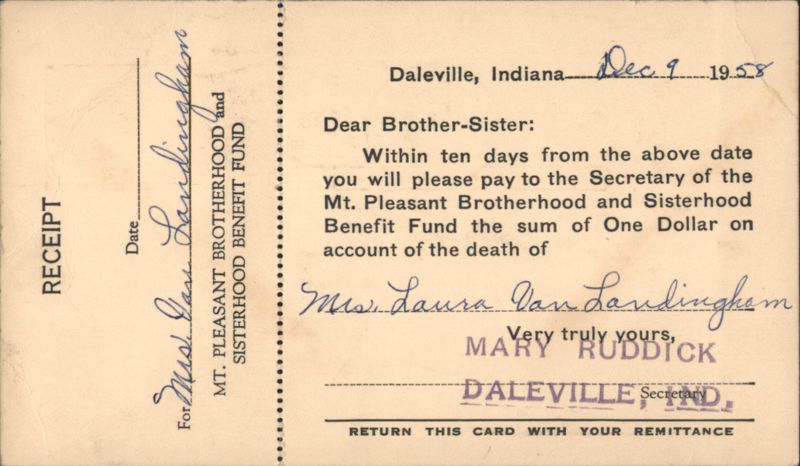 RECEIPT
Date
For Mrs. Van Landingham
MT. PLEASANT BROTHERHOOD and
SISTERHOOD BENEFIT FUND
Daleville, Indiana Dec 9 1958
Dear Brother-Sister:
Within ten days from the above date
you will please pay to the Secretary of the
Mt. Pleasant Brotherhood and Sisterhood
Benefit Fund the sum of One Dollar on
account of the death of
Mrs. Laura Van Landingham
Very truly yours,
MARY RUDDICK
DALEVILLE, IND.
Secretary
RETURN THIS CARD WITH YOUR REMITTANCE